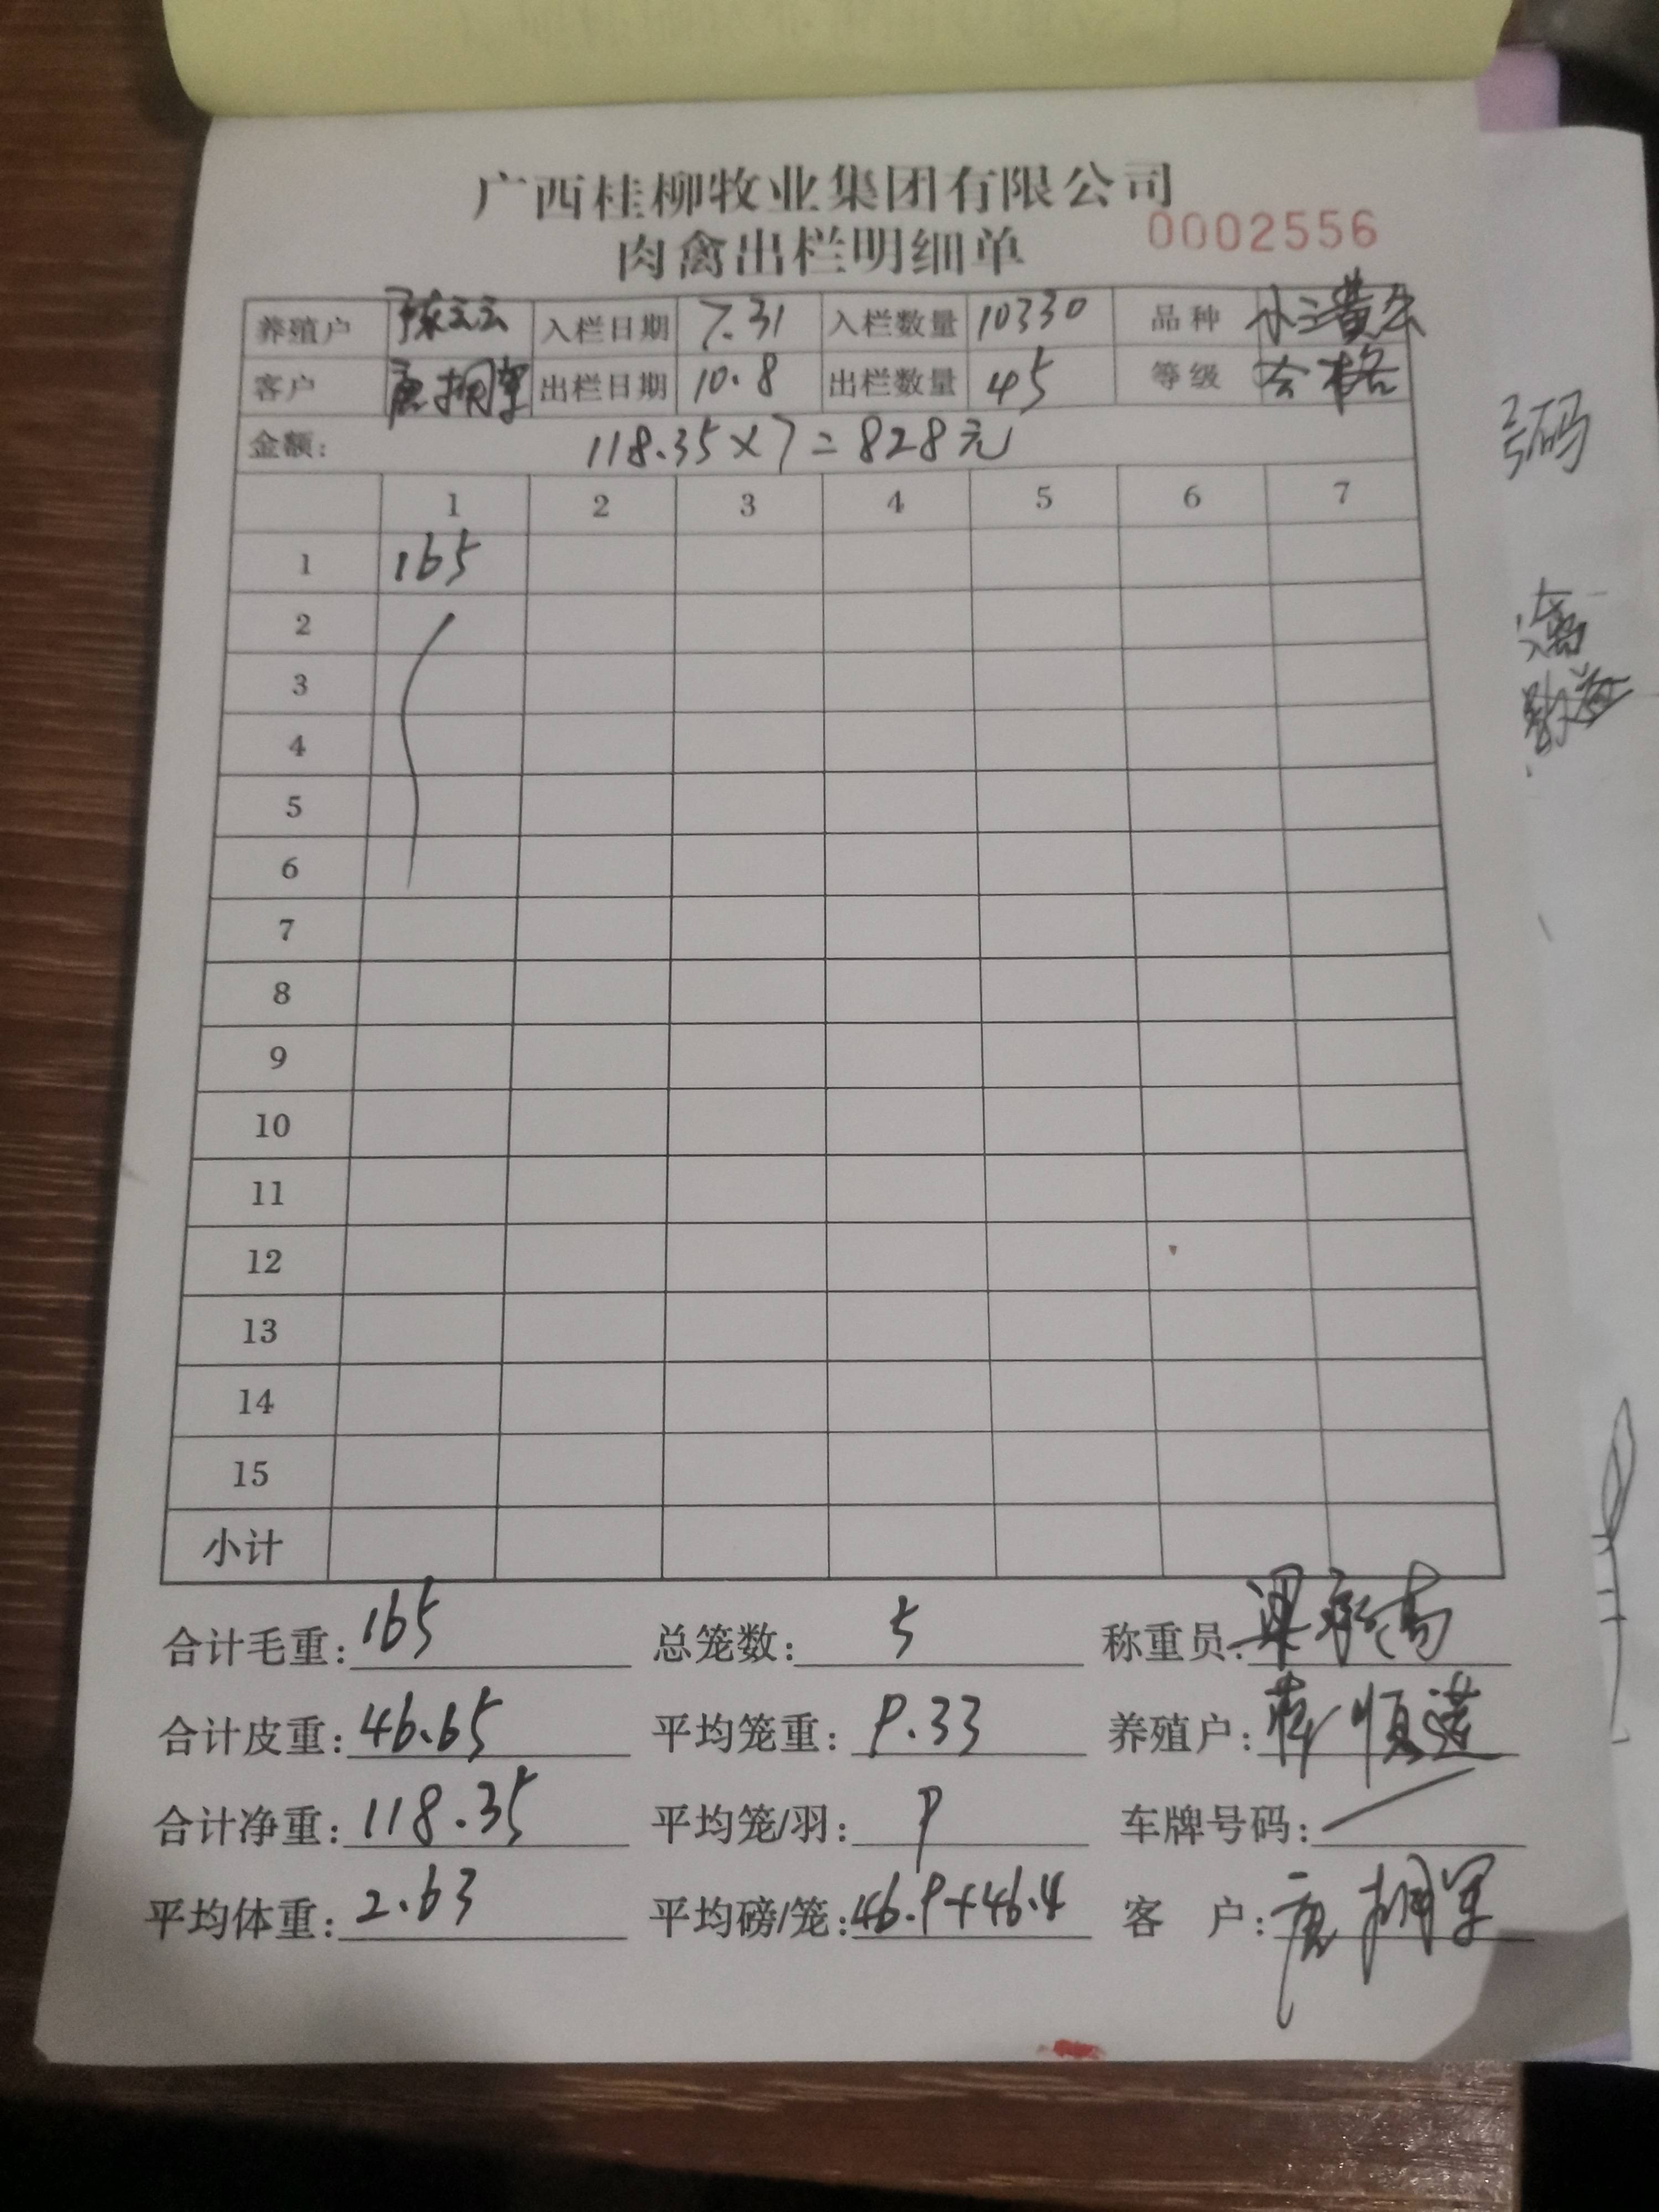 广西桂柳牧业集团有限公司
肉禽出栏明细单 0002556
养殖户 入栏日期 7.31 入栏数量 10330 品种
客户 出栏日期 10.8 出栏数量 45 等级 合格
金额: 118.35×7=828元
1 2 3 4 5 6 7
1 165
2
3
4
5
6
7
8
9
10
11
12
13
14
15
小计
合计毛重: 165 总笼数: 5 称重员:
合计皮重: 46.65 平均笼重: 9.33 养殖户:
合计净重: 118.35 平均笼/羽: 9 车牌号码:
平均体重: 2.63 平均磅/笼: 46.9+46.4 客 户:
号码